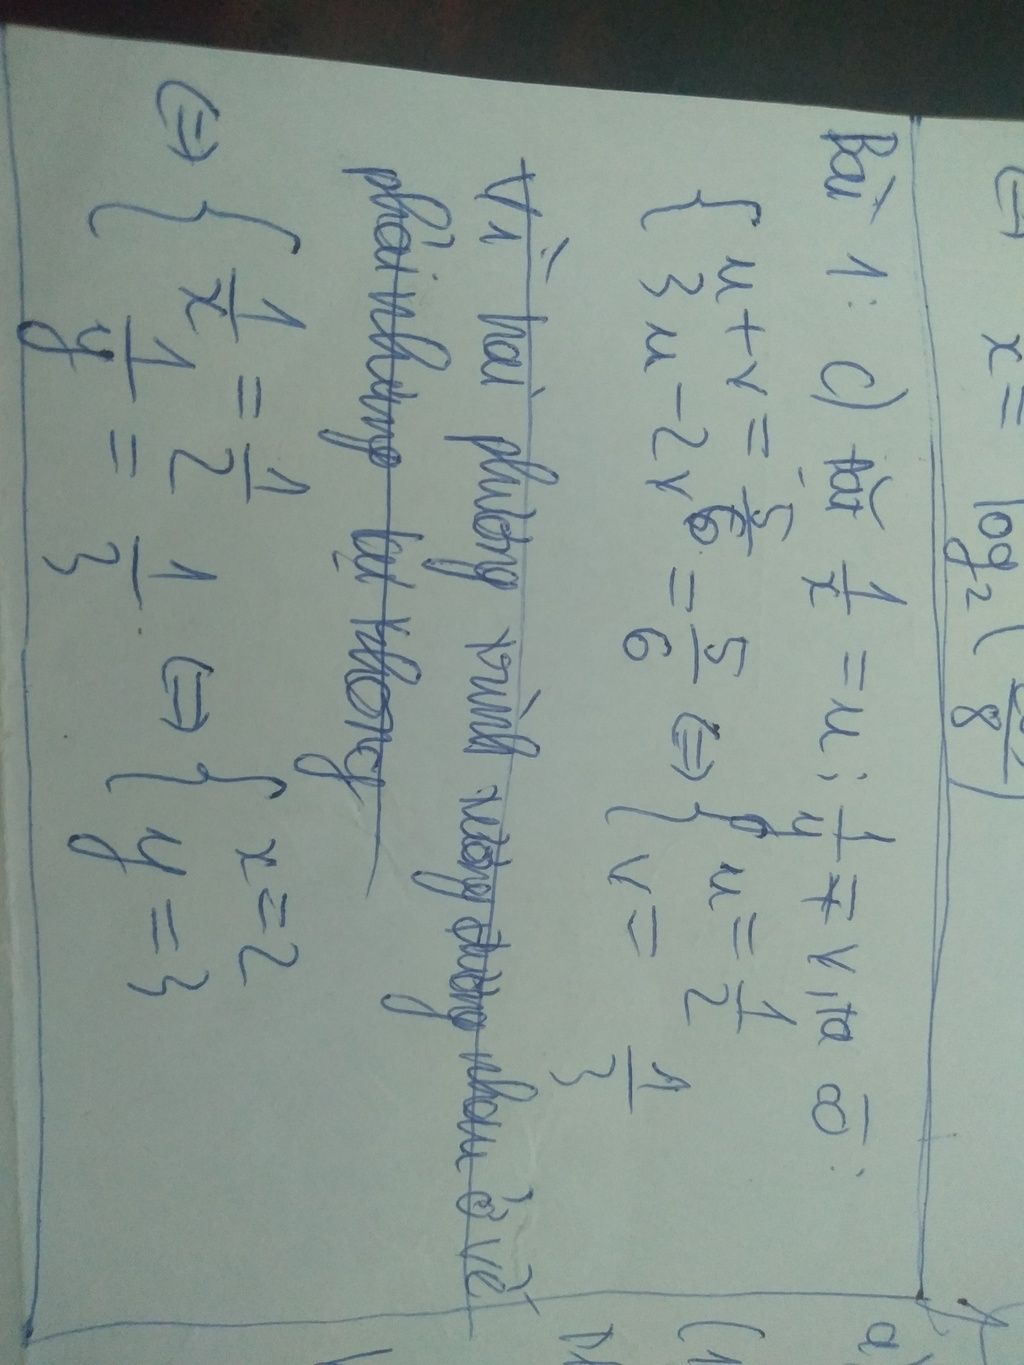 ⇔ x = log₂(
8
Bài 1: c) Đặt 1/x = u; 1/y = v, ta có:
{ u + v = 5/6
3u - 2v = 5/6 ⇔ { u = 1/2
v = 1/3
Vì hai phương trình tương đương nhau ở vế
phải nhưng lại không
⇔ { 1/x = 1/2
1/y = 1/3 ⇔ { x = 2
y = 3
a)
(1